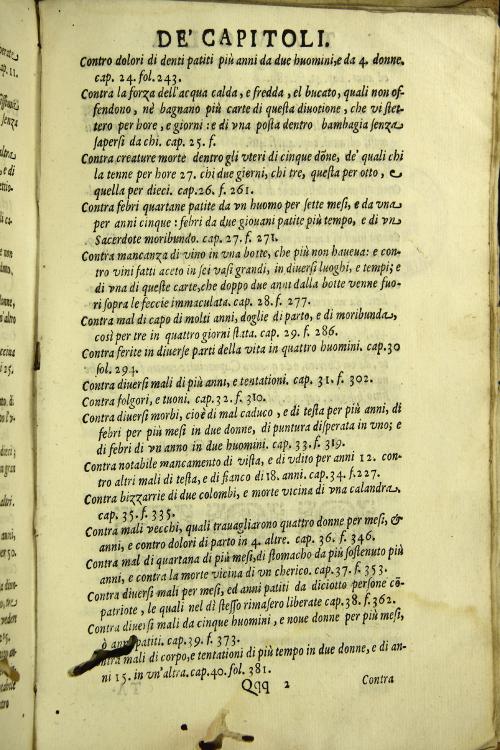 DE' CAPITOLI.
Contro dolori di denti patiti più anni da due huomini,e da 4. donne.
cap. 24. fol. 243.
Contra la forza dell'acqua calda, e fredda, el bucato, quali non of-
fendono, nè bagnano più carte di questa diuotione, che vi stet-
tero per hore, e giorni : e di vna posta dentro bambagia senza
sapersi da chi. cap. 25. f.
Contra creature morte dentro gli vteri di cinque dõne, de' quali chi
la tenne per hore 27. chi due giorni, chi tre, questa per otto, e
quella per dieci. cap.26. f. 261.
Contra febri quartane patite da vn huomo per sette mesi, e da vna
per anni cinque : febri da due giouani patite più tempo, e di vn
Sacerdote moribundo. cap. 27. f. 271.
Contra mancanza di vino in vna botte, che più non haueua: e con-
tro vini fatti aceto in sei vasi grandi, in diuersi luoghi, e tempi; e
di vna di queste carte,che doppo due anni dalla botte venne fuo-
ri sopra le feccie immaculata. cap. 28. f. 277.
Contra mal di capo di molti anni, doglie di parto, e di moribunda,
così per tre in quattro giorni stata. cap. 29. f. 286.
Contra ferite in diuerse parti della vita in quattro huomini. cap.30
fol. 294.
Contra diuersi mali di più anni, e tentationi. cap. 31. f. 302.
Contra folgori, e tuoni. cap. 32. f. 310.
Contra diuersi morbi, cioè di mal caduco, e di testa per più anni, di
febri per più mesi in due donne, di puntura disperata in vno; e
di febri di vn anno in due huomini. cap. 33. f. 319.
Contra notabile mancamento di vista, e di vdito per anni 12. con-
tro altri mali di testa, e di fianco di 18. anni. cap. 34. f. 227.
Contra bizzarrie di due colombi, e morte vicina di vna calandra,
cap. 35. f. 335.
Contra mali vecchi, quali trauagliarono quattro donne per mesi, &
anni, e contro dolori di parto in 4. altre. cap. 36. f. 346.
Contra mal di quartana di più mesi,di stomacho da più sostenuto più
anni, e contra la morte vicina di vn cherico. cap.37. f. 353.
Contra diuersi mali per mesi, ed anni patiti da diciotto persone cõ-
patriote, le quali nel dì stesso rimasero liberate cap.38. f. 362.
Contra diuersi mali da cinque huomini, e noue donne per più mesi,
ò anni patiti. cap. 39. f. 373.
Contra mali di corpo,e tentationi di più tempo in due donne, e di an-
ni 15. in vn'altra. cap.40. fol. 381.
Qqq 2
Contra